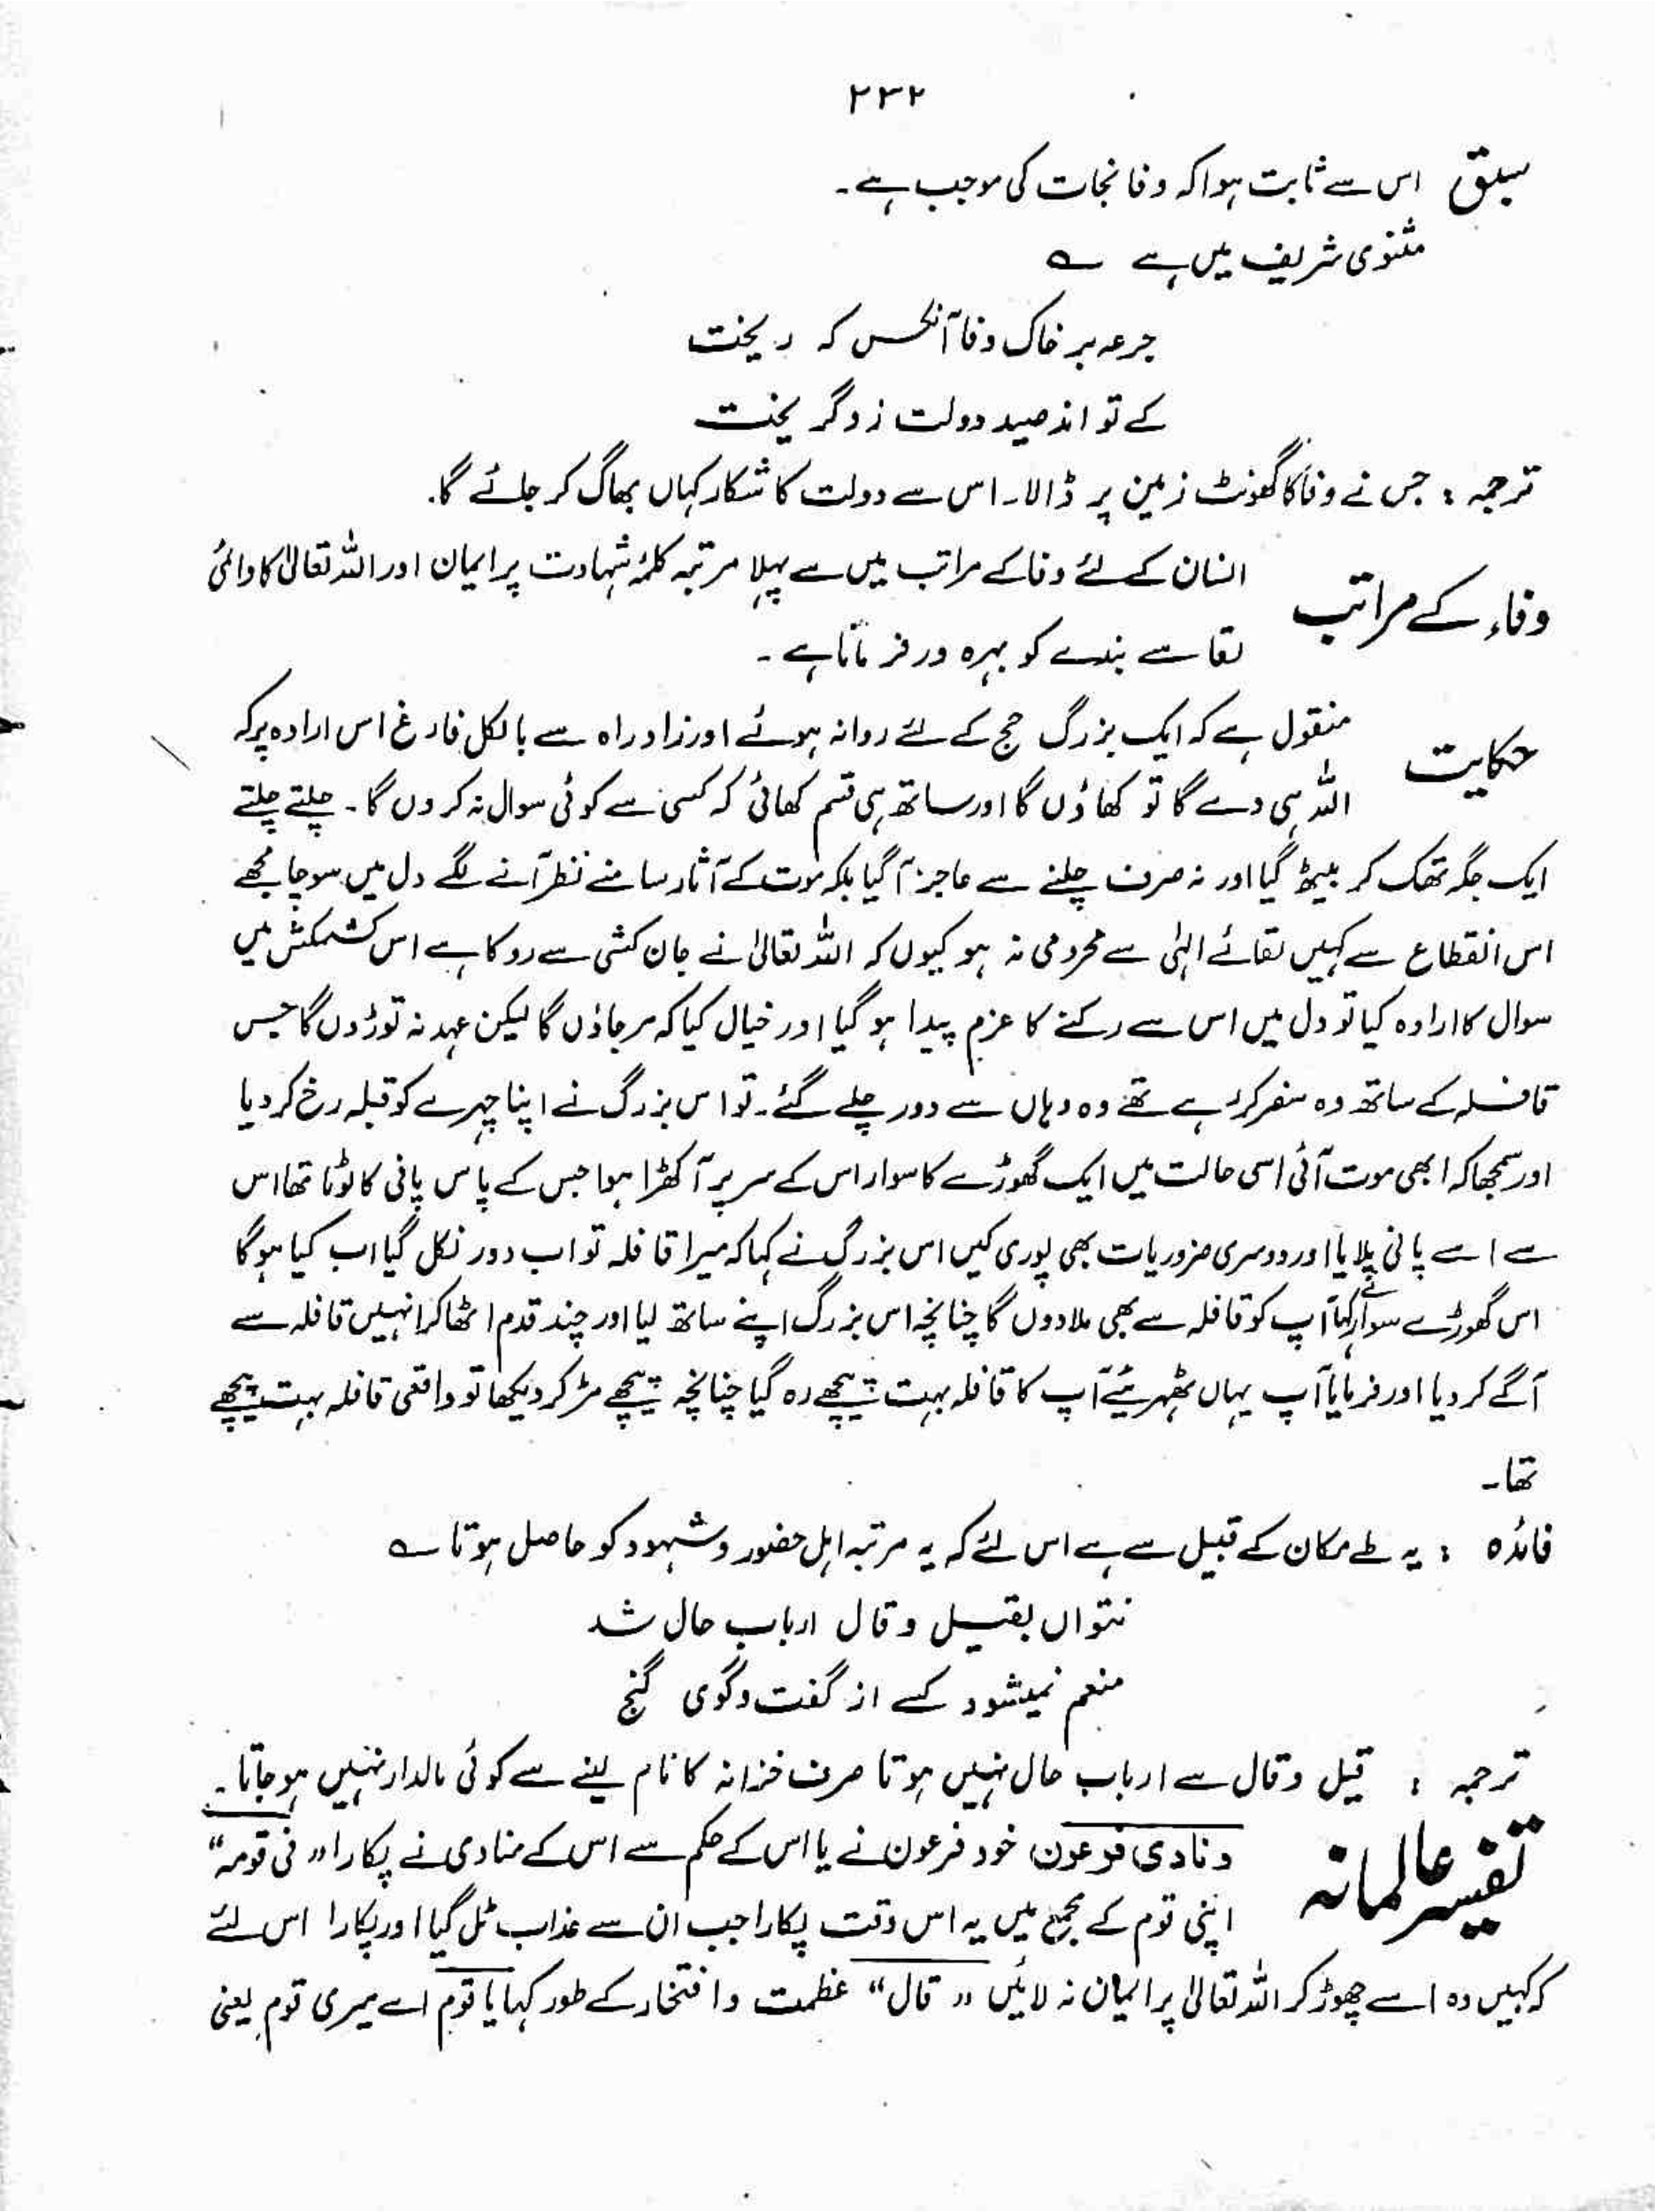 ۲۳۲
سبق اس سے ثابت ہوا کہ وفا نجات کی موجب ہے۔
مثنوی شریف میں ہے ؎
جرعہ بر خاک وفا آنکس کہ ریخت
کے تواند صید دولت زو گریخت
ترجمہ : جس نے وفا کا گھونٹ زمین پر ڈالا۔ اس سے دولت کا شکار کہاں بھاگ کر جائے گا۔
وفاء کے مراتب انسان کے لئے وفا کے مراتب میں سے پہلا مرتبہ کلمۂ شہادت پر ایمان اور اللہ تعالیٰ کا دائمی
لقا سے بندے کو بہرہ ور فرماتا ہے۔
حکایت منقول ہے کہ ایک بزرگ حج کے لئے روانہ ہوئے اور زاد راہ سے بالکل فارغ اس ارادہ پر کہ
اللہ ہی دے گا تو کھاؤں گا اور ساتھ ہی قسم کھائی کہ کسی سے کوئی سوال نہ کروں گا۔ چلتے چلتے
ایک جگہ تھک کر بیٹھ گیا اور نہ صرف چلنے سے عاجز آ گیا بلکہ موت کے آثار سامنے نظر آنے لگے دل میں سوچا مجھے
اس انقطاع سے کہیں لقائے الہٰی سے محرومی نہ ہو کیوں کہ اللہ تعالیٰ نے جان کشی سے روکا ہے اس کشمکش میں
سوال کا ارادہ کیا تو دل میں اس سے رکنے کا عزم پیدا ہو گیا اور خیال کیا کہ مر جاؤں گا لیکن عہد نہ توڑوں گا جس
قافلہ کے ساتھ وہ سفر کر رہے تھے وہ وہاں سے دور چلے گئے۔ تو اس بزرگ نے اپنا چہرے کو قبلہ رخ کر دیا
اور سمجھا کہ ابھی موت آئی اسی حالت میں ایک گھوڑے کا سوار اس کے سر پر آ کھڑا ہوا جس کے پاس پانی کا لوٹا تھا اس
سے اسے پانی پلایا اور دوسری ضروریات بھی پوری کیں اس بزرگ نے کہا کہ میرا قافلہ تو اب دور نکل گیا اب کیا ہوگا
اس گھوڑے سوار نے کہا آپ کو قافلہ سے بھی ملا دوں گا چنانچہ اس بزرگ اپنے ساتھ لیا اور چند قدم اٹھا کر انہیں قافلہ سے
آگے کر دیا اور فرمایا آپ یہاں ٹھہریئے آپ کا قافلہ بہت پیچھے رہ گیا چنانچہ پیچھے مڑ کر دیکھا تو واقعی قافلہ بہت پیچھے
تھا۔
فائدہ : یہ طے مکان کے قبیل سے ہے اس لئے کہ یہ مرتبہ اہل حضور و شہود کو حاصل ہوتا ؎
نتواں بقیل و قال ارباب حال شد
منعم نمیشود کسے از گفت وگوی گنج
ترجمہ : قیل و قال سے ارباب حال نہیں ہوتا صرف خزانہ کا نام لینے سے کوئی مالدار نہیں ہو جاتا۔
تفسیر عالمانہ ونادی فرعون خود فرعون نے یا اس کے حکم سے اس کے منادی نے پکارا ”فی قومہ“
اپنی قوم کے مجمع میں یہ اس وقت پکارا جب ان سے عذاب ٹل گیا اور پکارا اس لئے
کہ کہیں وہ اسے چھوڑ کر اللہ تعالیٰ پر ایمان نہ لائیں ”قال“ عظمت و افتخار کے طور کہا یا قوم اے میری قوم یعنی